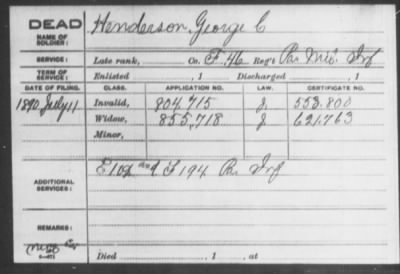 DEAD
NAME OF SOLDIER: Henderson, George C
SERVICE: Late rank, Co. F, 46 Reg't Pa. Inf
TERM OF SERVICE: Enlisted , 1 Discharged , 1
DATE OF FILING. CLASS. APPLICATION NO. LAW. CERTIFICATE NO.
1890 July 11 Invalid, 804,715 J. 553.800
Widow, 855,718 J 621,763
Minor,
ADDITIONAL SERVICES: E 102 and F 194 Pa. Inf
REMARKS:
Died , 1 , at